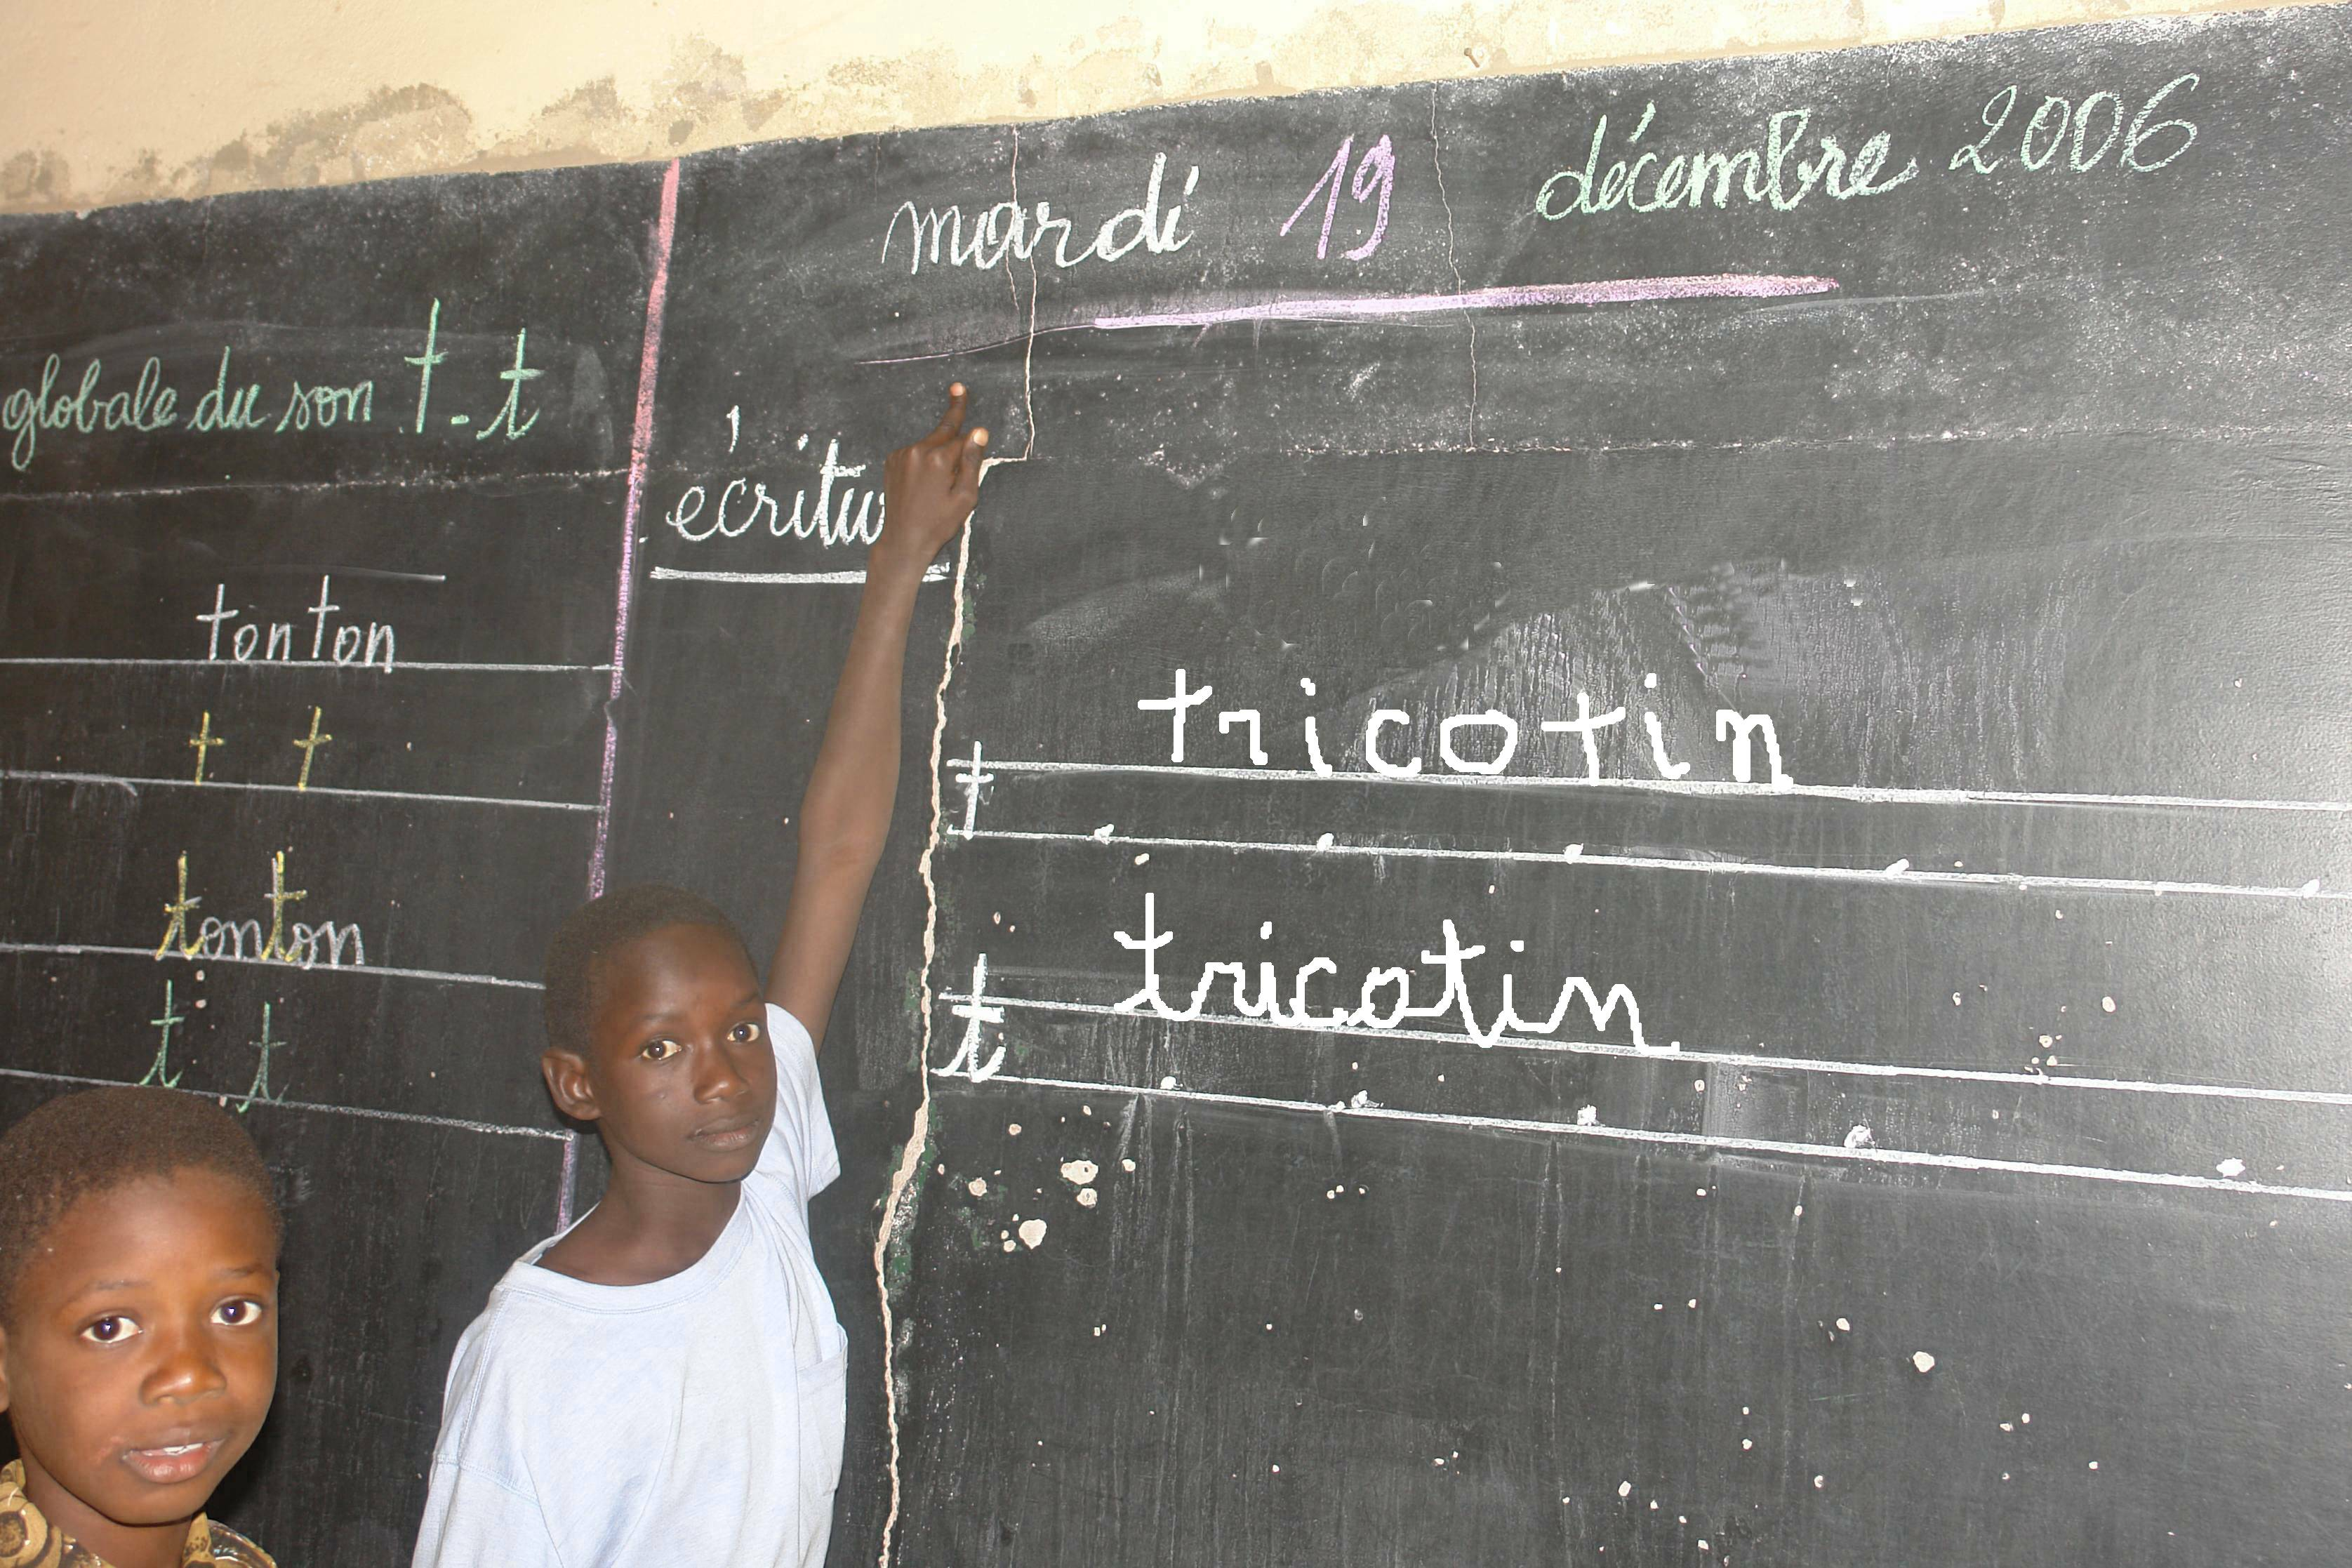 mardi 19 décembre 2006
globale du son t - t
tonton
t t
tonton
t t
écritu
tricotin
t
tricotin
t